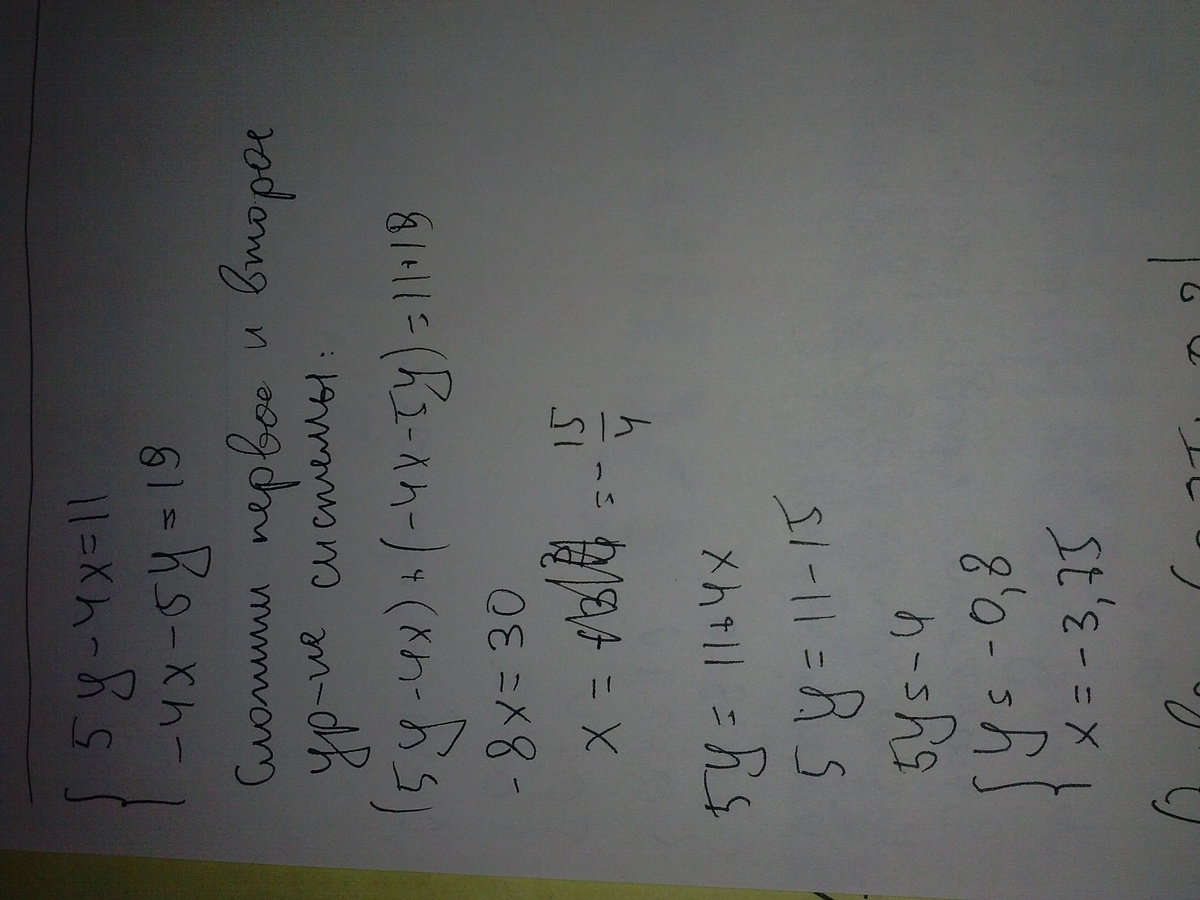 5y - 4x = 11
-4x - 5y = 19
Сложим первое и второе
ур-ие системы:
(5y - 4x) + (-4x - 5y) = 11 + 19
-8x = 30
x = = - 15/4
5y = 11 + 4x
5y = 11 - 15
5y = -4
y = -0,8
x = -3,75